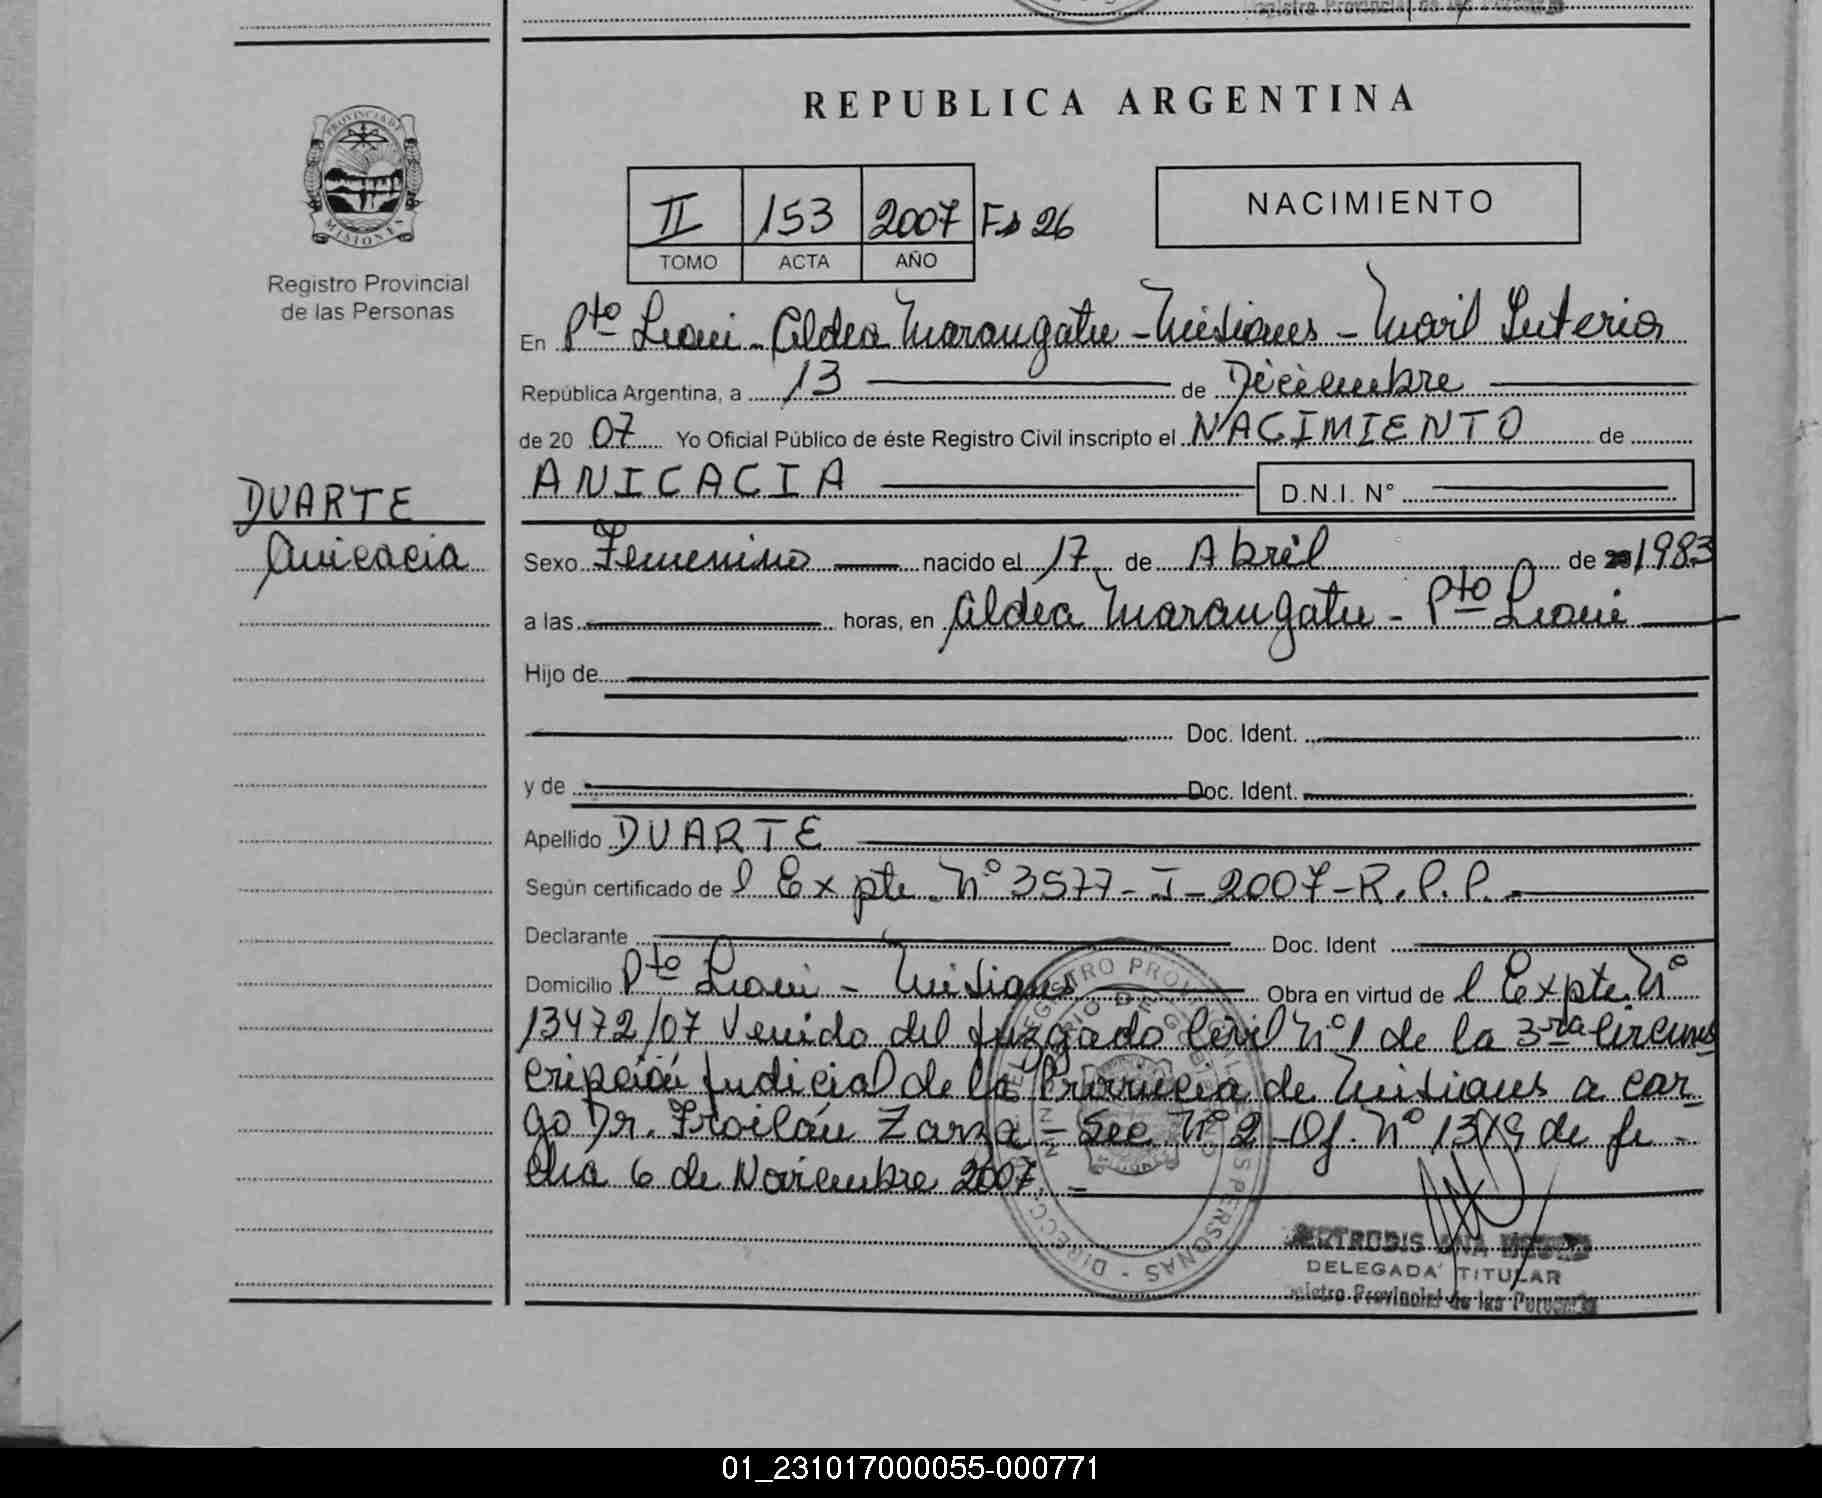 REPUBLICA ARGENTINA
PROVINCIA DE MISIONES
Registro Provincial
de las Personas
II 153 2007 Fº 26
TOMO ACTA AÑO
NACIMIENTO
En Pto Leoni - Aldea Marangatu - Misiones - Movil Interior
República Argentina, a 13 de Diciembre
de 20 07 Yo Oficial Público de éste Registro Civil inscripto el NACIMIENTO de
ANICACIA D.N.I. Nº
DUARTE
Anicacia
Sexo Femenino nacido el 17 de Abril de 1983
a las horas, en Aldea Marangatu - Pto Leoni
Hijo de
Doc. Ident.
y de Doc. Ident.
Apellido DUARTE
Según certificado de l Expte. Nº 3577-I-2007-R.P.P.
Declarante Doc. Ident
Domicilio Pto Leoni - Misiones Obra en virtud de l Expte. Nº
13472/07 Venido del Juzgado Civil Nº 1 de la 3ra Circuns
cripción Judicial de la Provincia de Misiones a car-
go Dr. Froilán Zarza - Sec Nº 2 - Of. Nº de fe-
cha 6 de Noviembre 2007.-
ANA
DELEGADA TITULAR
Registro Provincial de las Personas
01_231017000055-000771